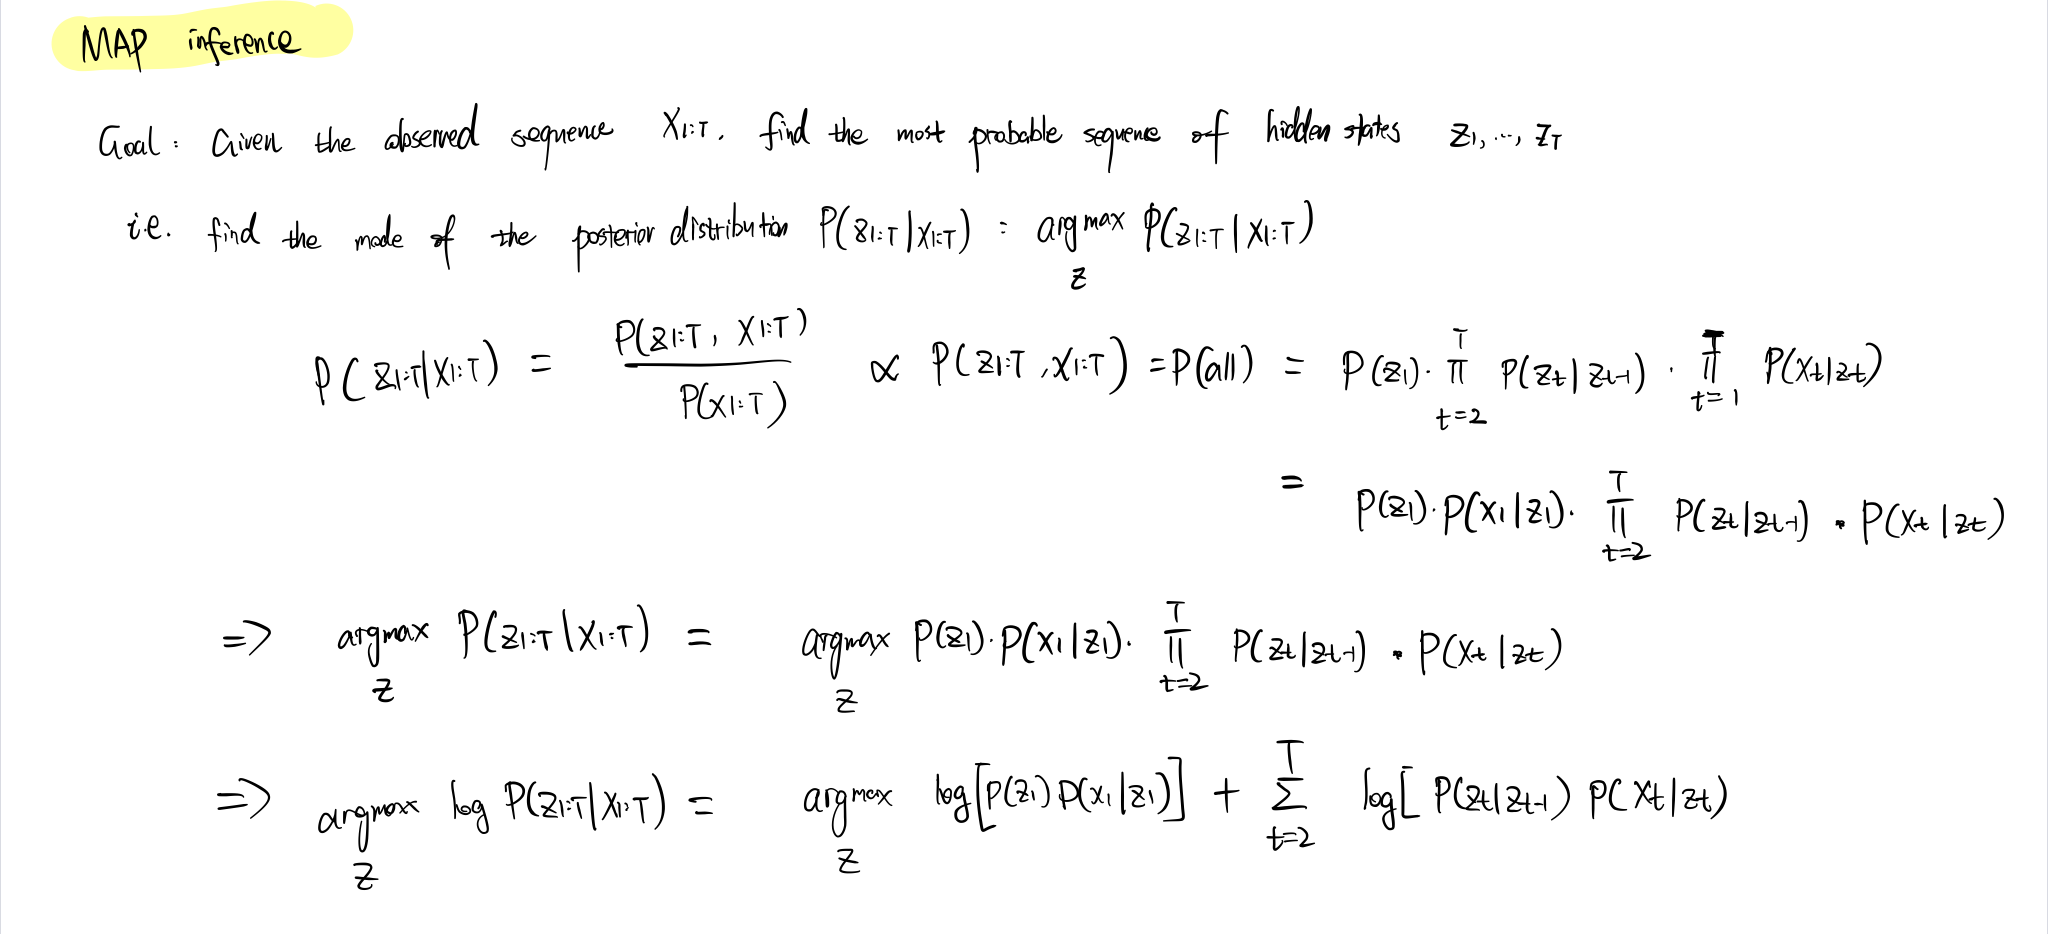 MAP inference
Goal: Given the observed sequence X1:T, find the most probable sequence of hidden states Z1, ..., ZT
i.e. find the mode of the posterior distribution P(Z1:T|X1:T) : argmax_Z P(Z1:T|X1:T)
P(Z1:T|X1:T) = P(Z1:T, X1:T) / P(X1:T) ∝ P(Z1:T, X1:T) = P(all) = P(Z1) · ∏_{t=2}^{T} P(Zt|Zt-1) · ∏_{t=1}^{T} P(Xt|Zt)
= P(Z1) · P(X1|Z1) · ∏_{t=2}^{T} P(Zt|Zt-1) · P(Xt|Zt)
=> argmax_Z P(Z1:T|X1:T) = argmax_Z P(Z1) · P(X1|Z1) · ∏_{t=2}^{T} P(Zt|Zt-1) · P(Xt|Zt)
=> argmax_Z log P(Z1:T|X1:T) = argmax_Z log[P(Z1) P(X1|Z1)] + ∑_{t=2}^{T} log[ P(Zt|Zt-1) P(Xt|Zt)